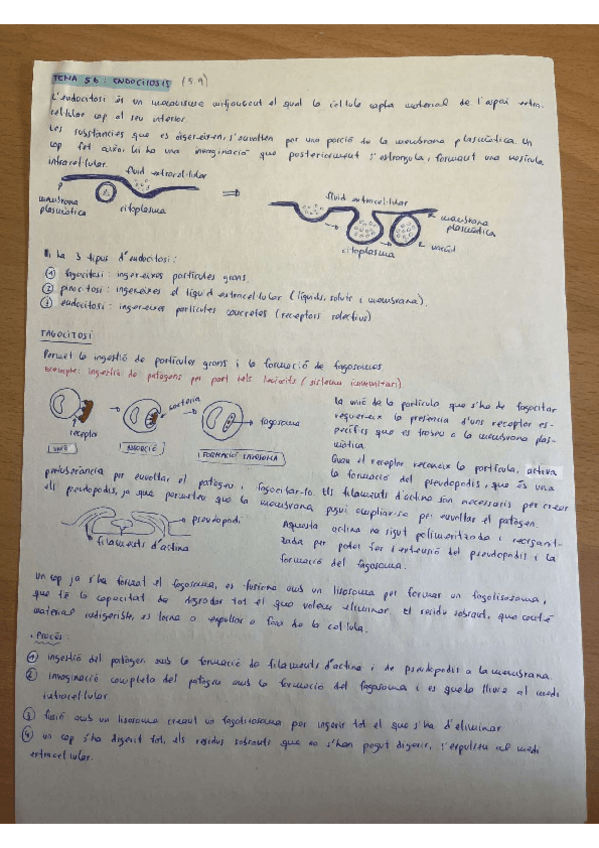 TEMA 5b: ENDOCITOSIS (5.9)
L'endocitosi és un mecanisme mitjançant el qual la cèl·lula capta material de l'espai extra-
cel·lular cap al seu interior.
Les substàncies que es digereixen, s'envolten per una porció de la membrana plasmàtica. Un
cop fet això, hi ha una invaginació que posteriorment s'estrangula, formant una vesícula
intracel·lular.
fluid extracel·lular
membrana
plasmàtica
citoplasma
fluid extracel·lular
membrana
plasmàtica
citoplasma
Hi ha 3 tipus d'endocitosi:
① fagocitosi: ingereixes partícules grans.
② pinocitosi: ingereixes el líquid extracel·lular (líquids, soluts i membrana).
③ endocitosi: ingereixes partícules concretes (receptors selectius)
FAGOCITOSI
Permet la ingestió de partícules grans i la formació de fagosomes
exemple: ingestió de patògens per part dels leucòcits (sistema immunitari).
bacteria
receptor
fagosoma
UNIÓ
FORMACIÓ FAGOSOMA
La unió de la partícula que s'ha de fagocitar
requereix la presència d'uns receptor es-
pecífics que es troben a la membrana plas-
màtica.
Quan el receptor reconeix la partícula, activa
la formació del pseudopodis, que és una
protuberància per envoltar el patògen i fagocitar-lo. Els filaments d'actina són necessaris per crear
els pseudopodis, ja que permeten que la membrana pugui ampliar-se per envoltar el patògen.
pseudopodi
filaments d'actina
Aquesta actina ha sigut polimeritzada i reorganit-
zada per poder fer l'extensió del pseudopodis i la
formació del fagosoma.
Un cop ja s'ha format el fagosoma, es fusiona amb un lisosoma per formar un fagolisosoma,
que té la capacitat de degradar tot el que volem eliminar. El residu sobrant, que conté
material indigerible, es torna a expulsar a fora de la cèl·lula.
· Procés:
① ingestió del patògen, amb la formació de filaments d'actina i de pseudopodis a la membrana.
② invaginació completa del patògen amb la formació del fagosoma i es queda lliure al medi
intracel·lular.
③ fusió amb un lisosoma creant un fagolisosoma per ingerir tot el que s'ha d'eliminar
④ un cop s'ha digerit tot, els residus sobrants que no s'han pogut digerir, s'expulsen al medi
extracel·lular.